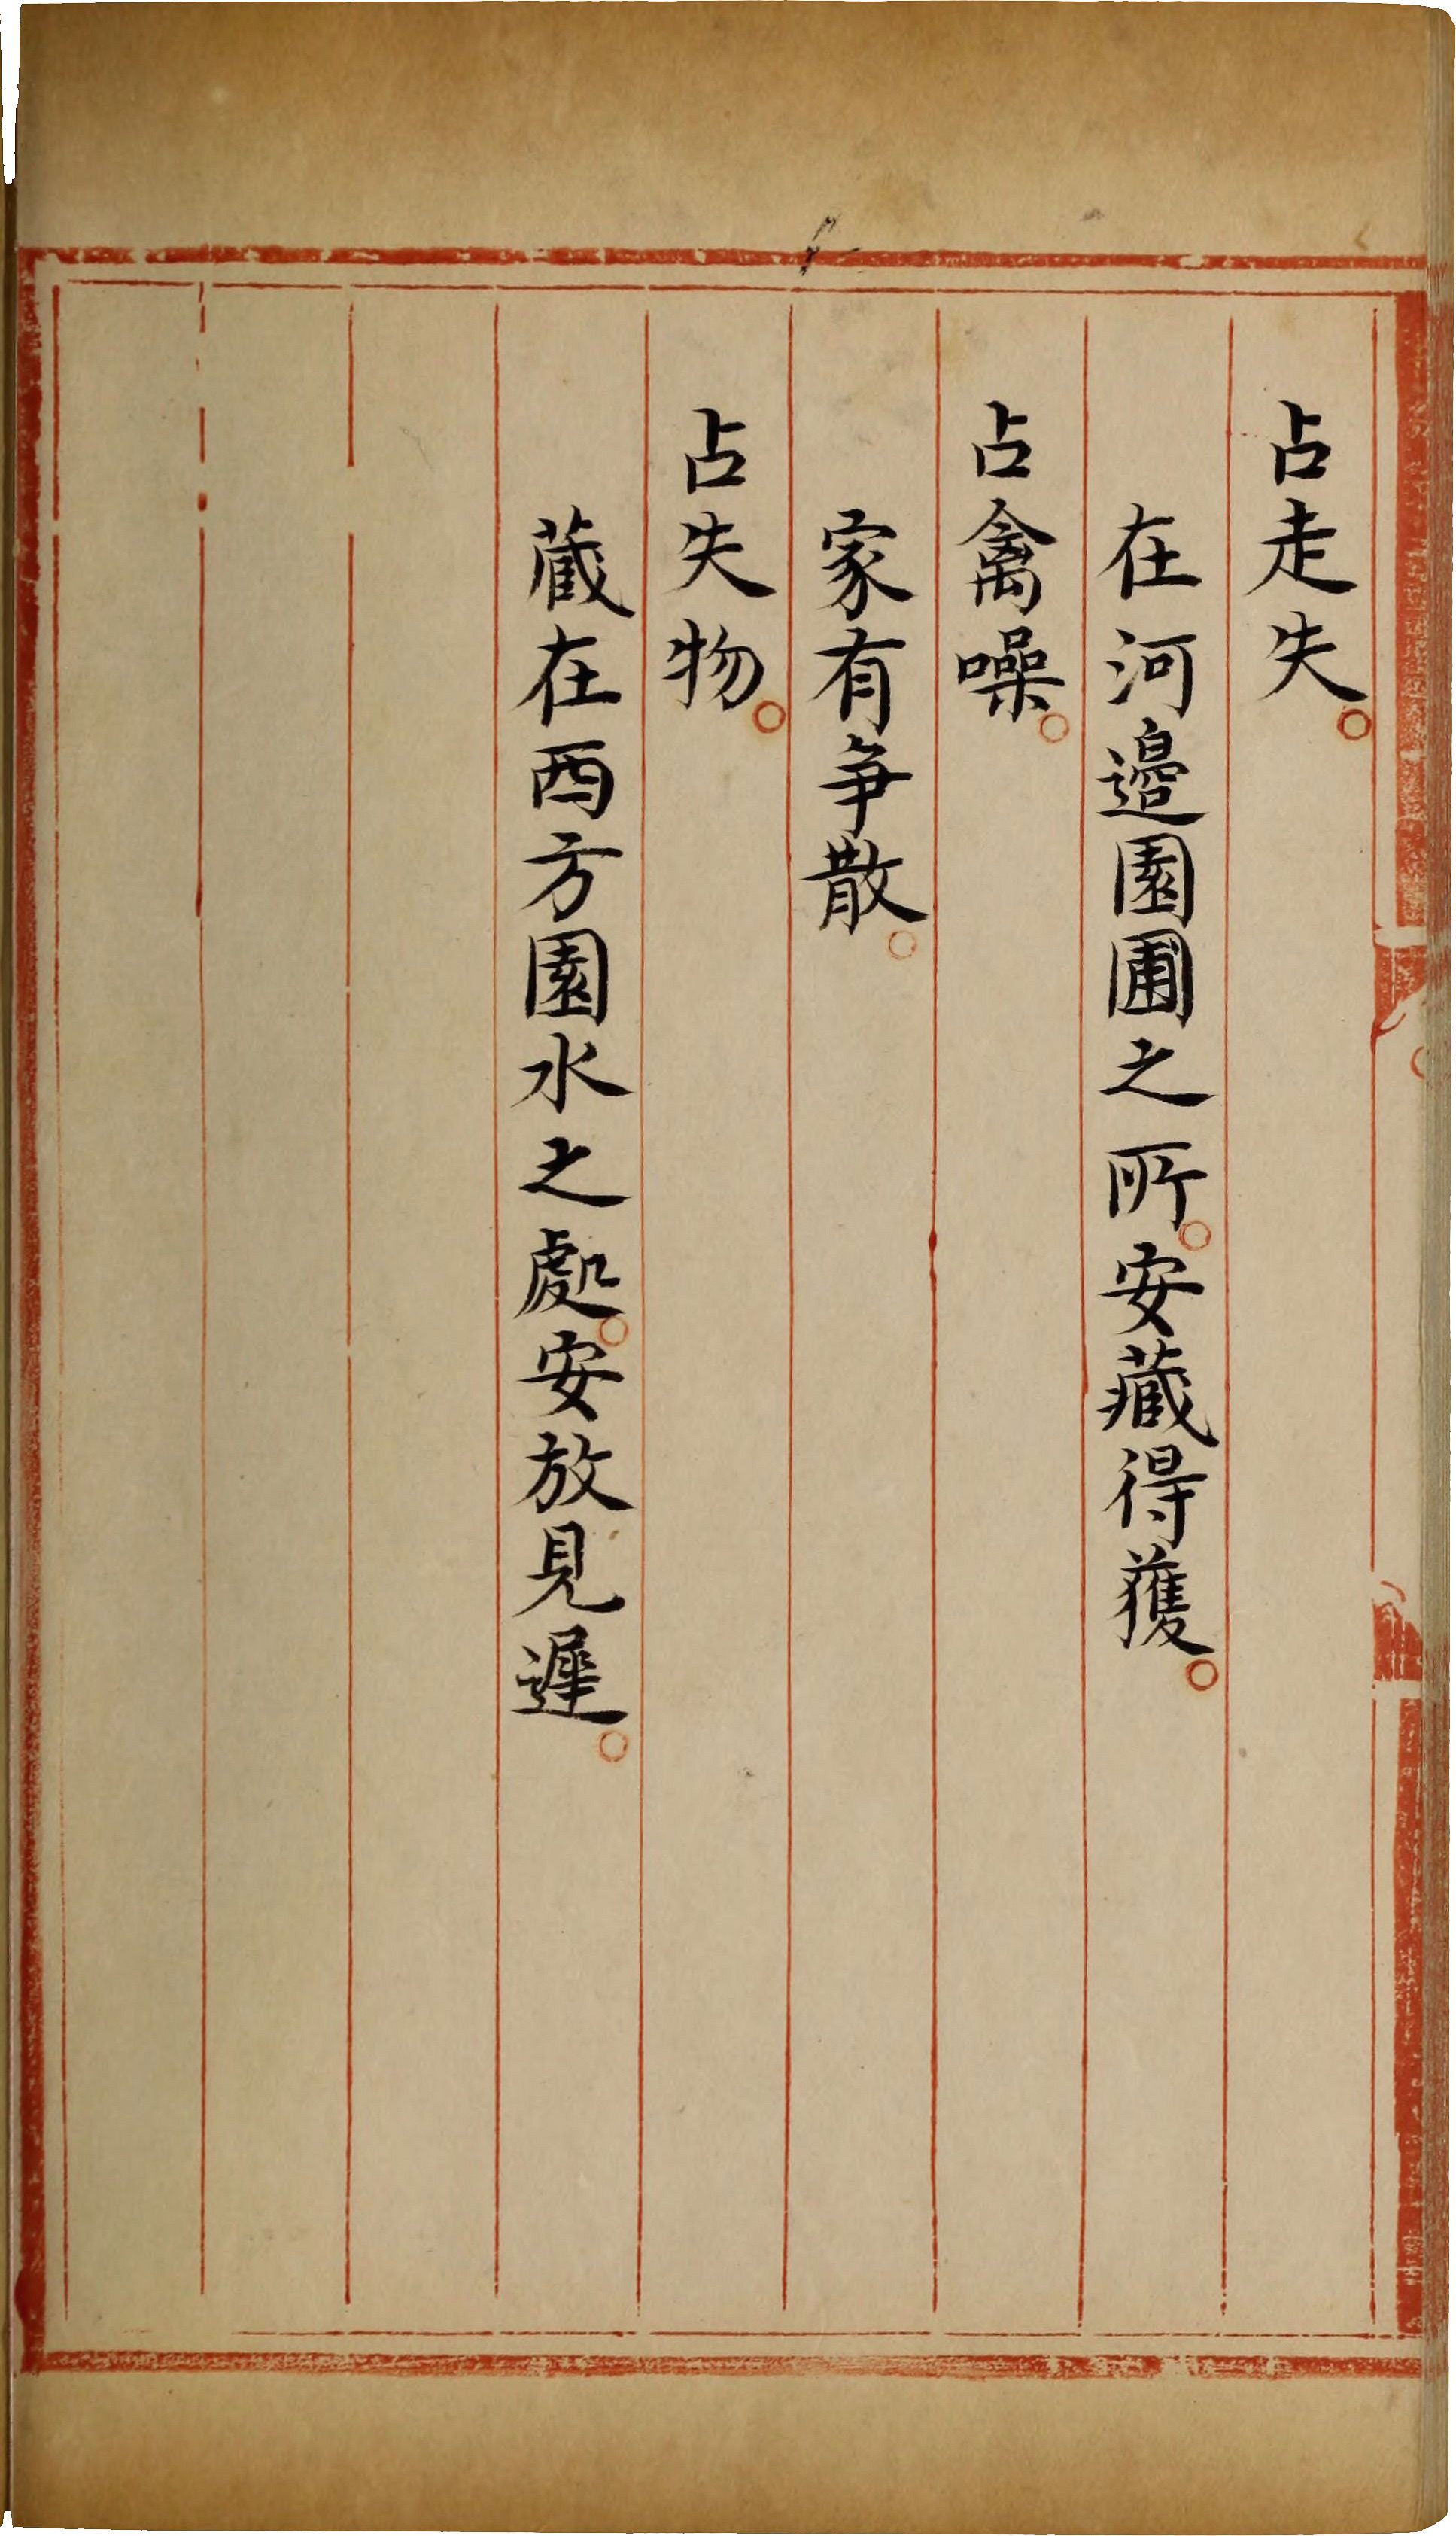 占走失。
在河邉園圃之所。安藏得獲。
占禽噪。
家有爭散。
占失物。
藏在西方園水之處。安放見遲。